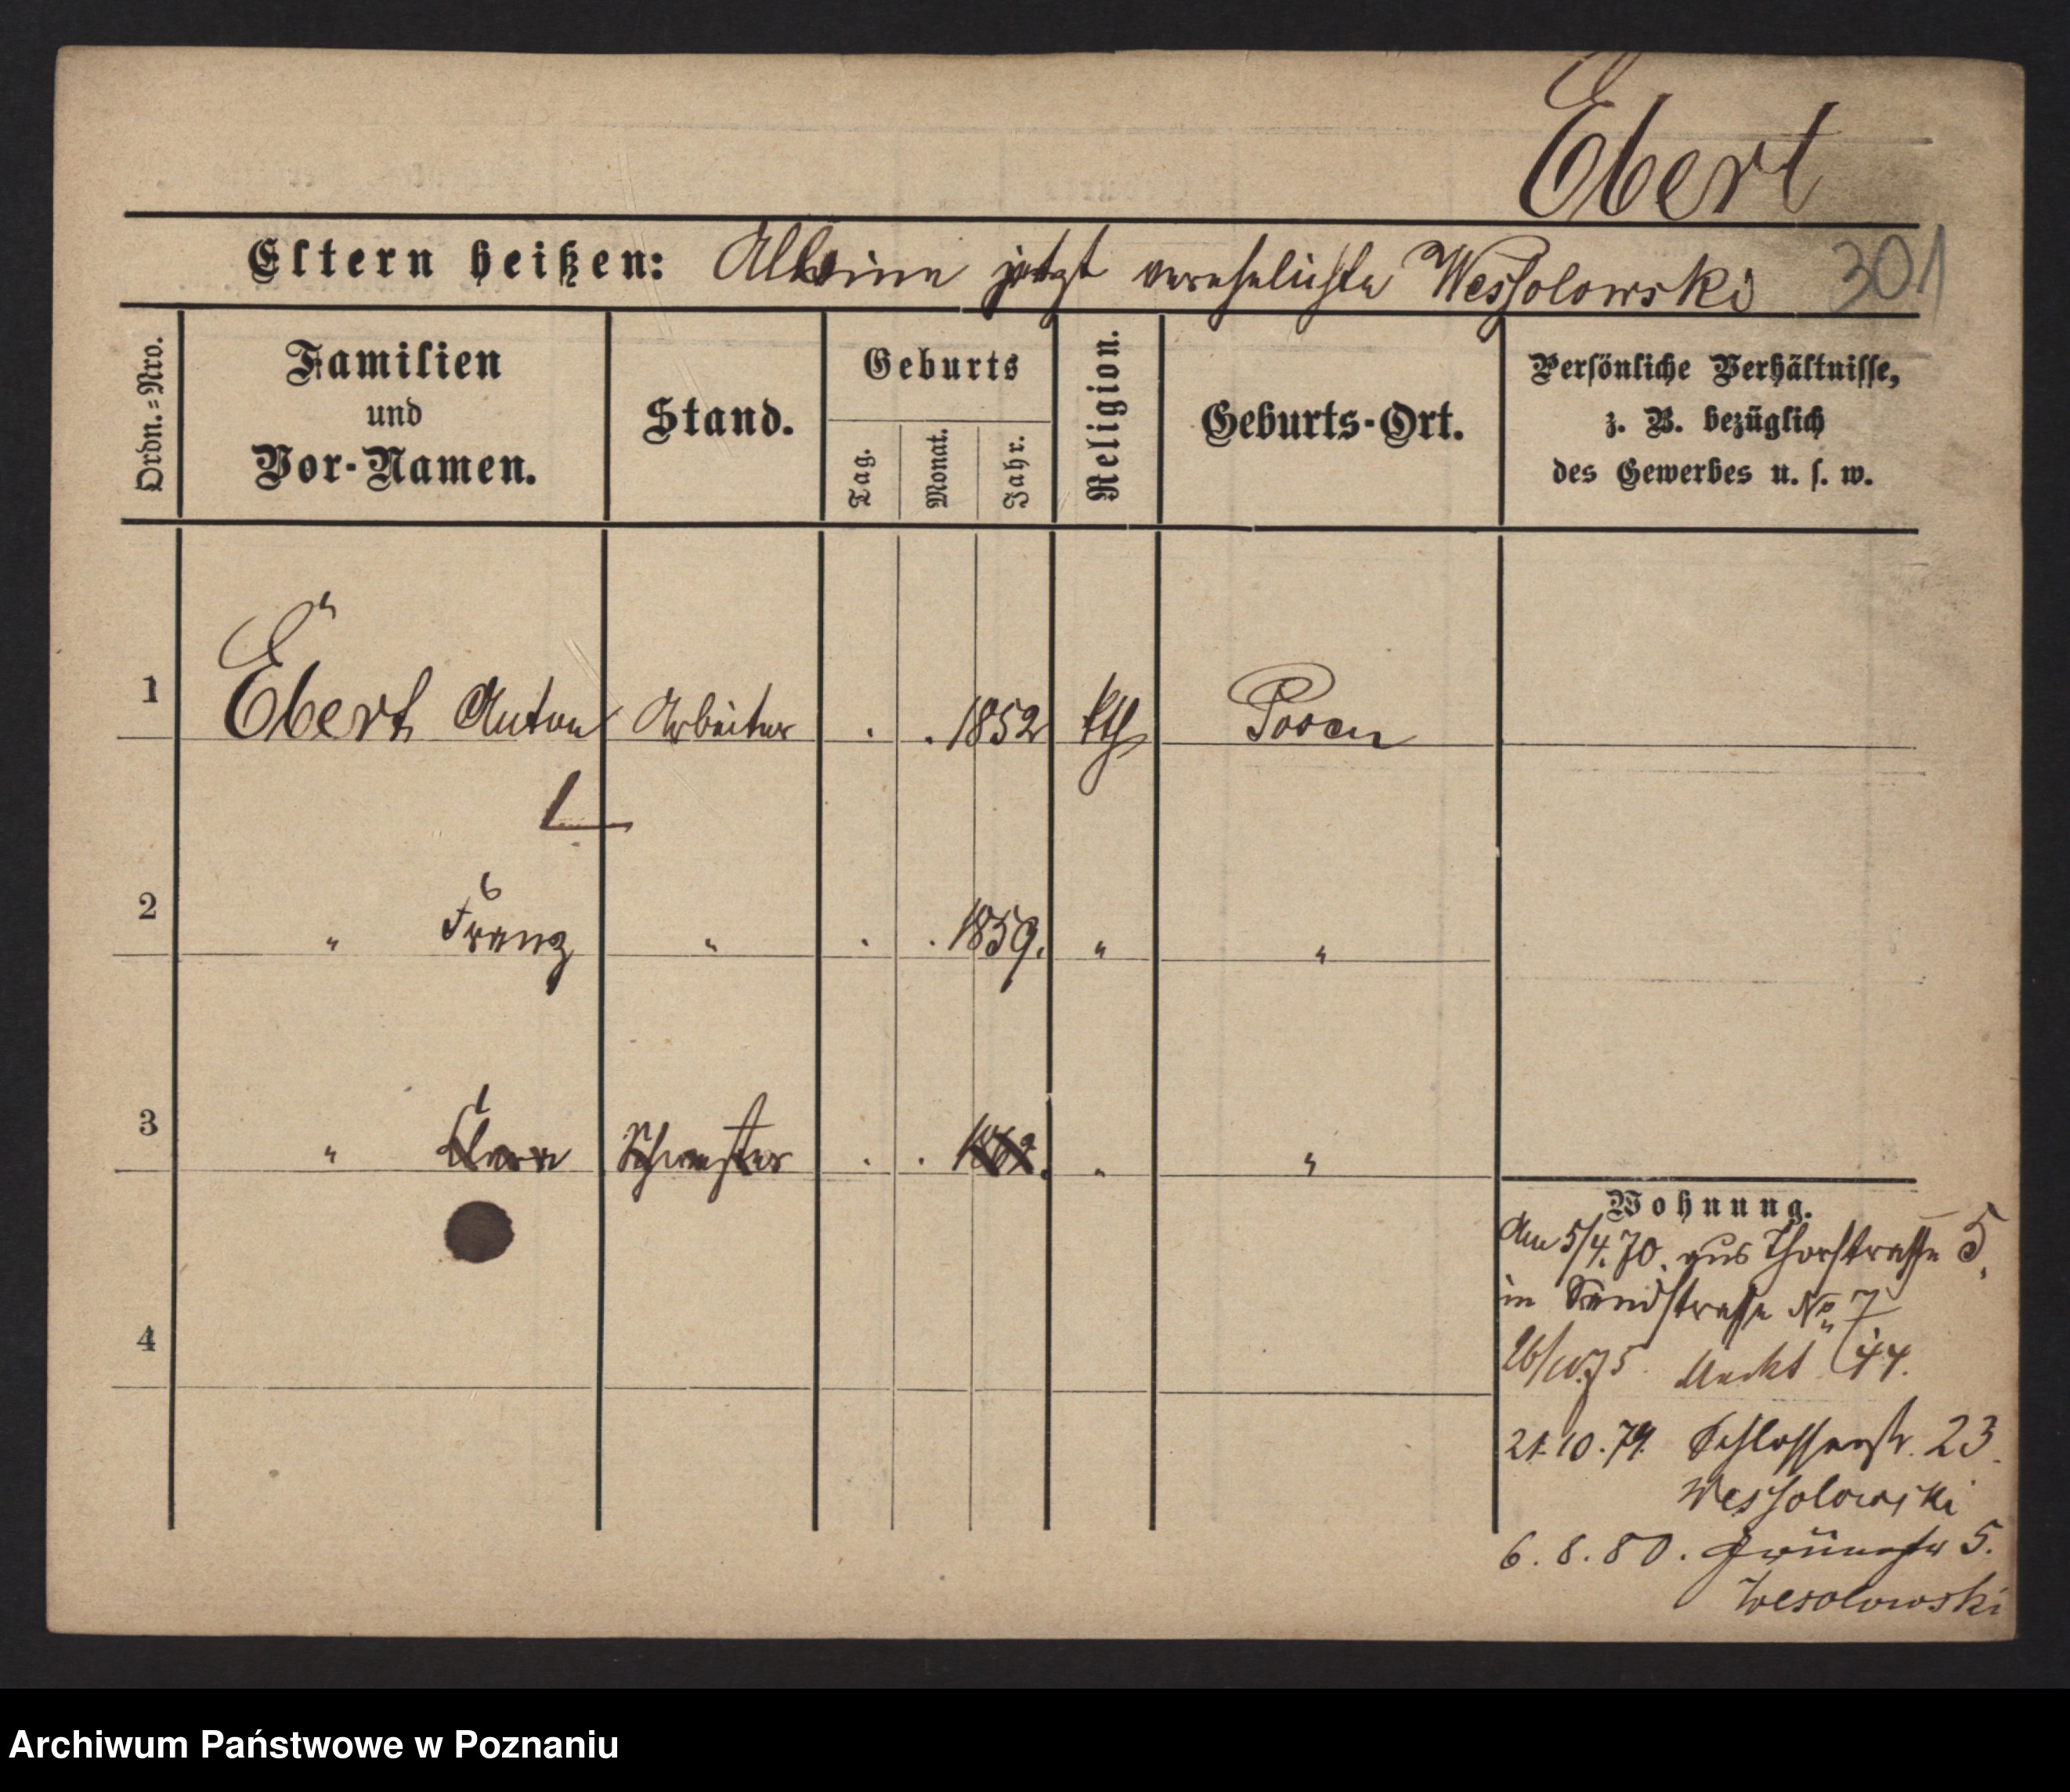 Ebert
Eltern heißen: Albine jetzt verehelichte Wessolowski 301
Ordn.=Nro. Familien und Vor-Namen. Stand. Geburts Tag. Monat. Jahr. Religion. Geburts-Ort. Persönliche Verhältnisse, z. B. bezüglich des Gewerbes u. s. w.
1 Ebert Anton Arbeiter . . 1852 kth Posen
2 " Franz " . . 1859. " "
3 " Schwester . . " "
Wohnung.
Am 5/4.70. aus Thorstrasse 5.
in Sandstrasse No 7
26/10.75. Markt 44.
4
21.10.79. Schlosserstr. 23.
Wessolowski
6.8.80. Grünestr 5.
Wesolowski
Archiwum Państwowe w Poznaniu